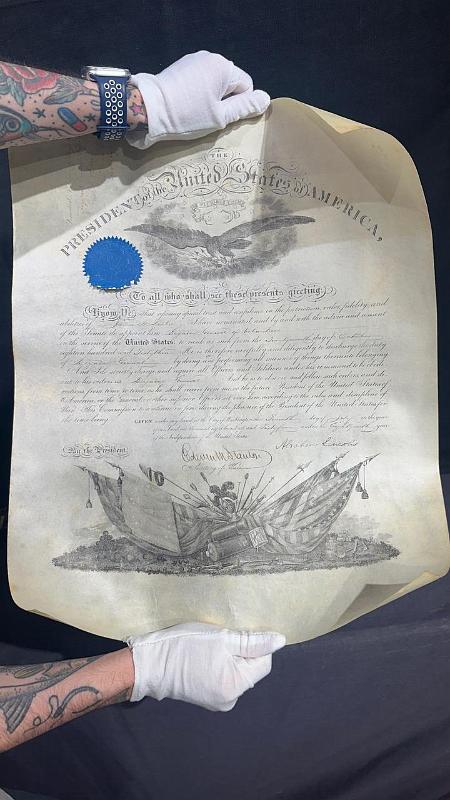 THE
PRESIDENT of the United States of AMERICA,
To all who shall see these presents greeting:
Know Ye, That reposing special trust and confidence in the patriotism, valor, fidelity, and
abilities of I have nominated and by and with the advice and consent
of the Senate do appoint him
in the service of the United States: to rank as such from the day of
eighteen hundred and He is therefore carefully and diligently to discharge the duty
of by doing and performing all manner of things thereunto belonging.
And I do strictly charge and require all Officers and Soldiers under his command to be obedi-
ent to his orders as And he is to observe and follow such orders and di-
rections from time to time as he shall receive from me or the future President of the United States of
America, or the General or other superior Officers set over him, according to the rules and discipline of
War. This Commission to continue in force during the pleasure of the President of the United States, for
the time being.
GIVEN under my hand at the City of Washington this day of in the year
of our Lord one thousand eight hundred and and in the year
of the Independence of the United States.
By the President
Abraham Lincoln
Edwin M Stanton
Secretary of War